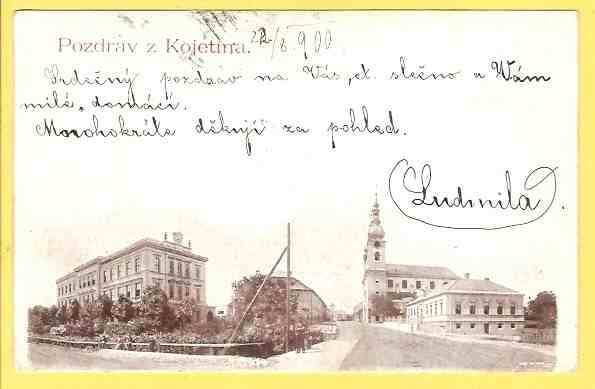 Pozdrav z Kojetína. 22/8 900
Srdečný pozdrav na Vás, ct. slečno a Vám
milé domácí.
Mnohokráte děkuji za pohled.
Ludmila.